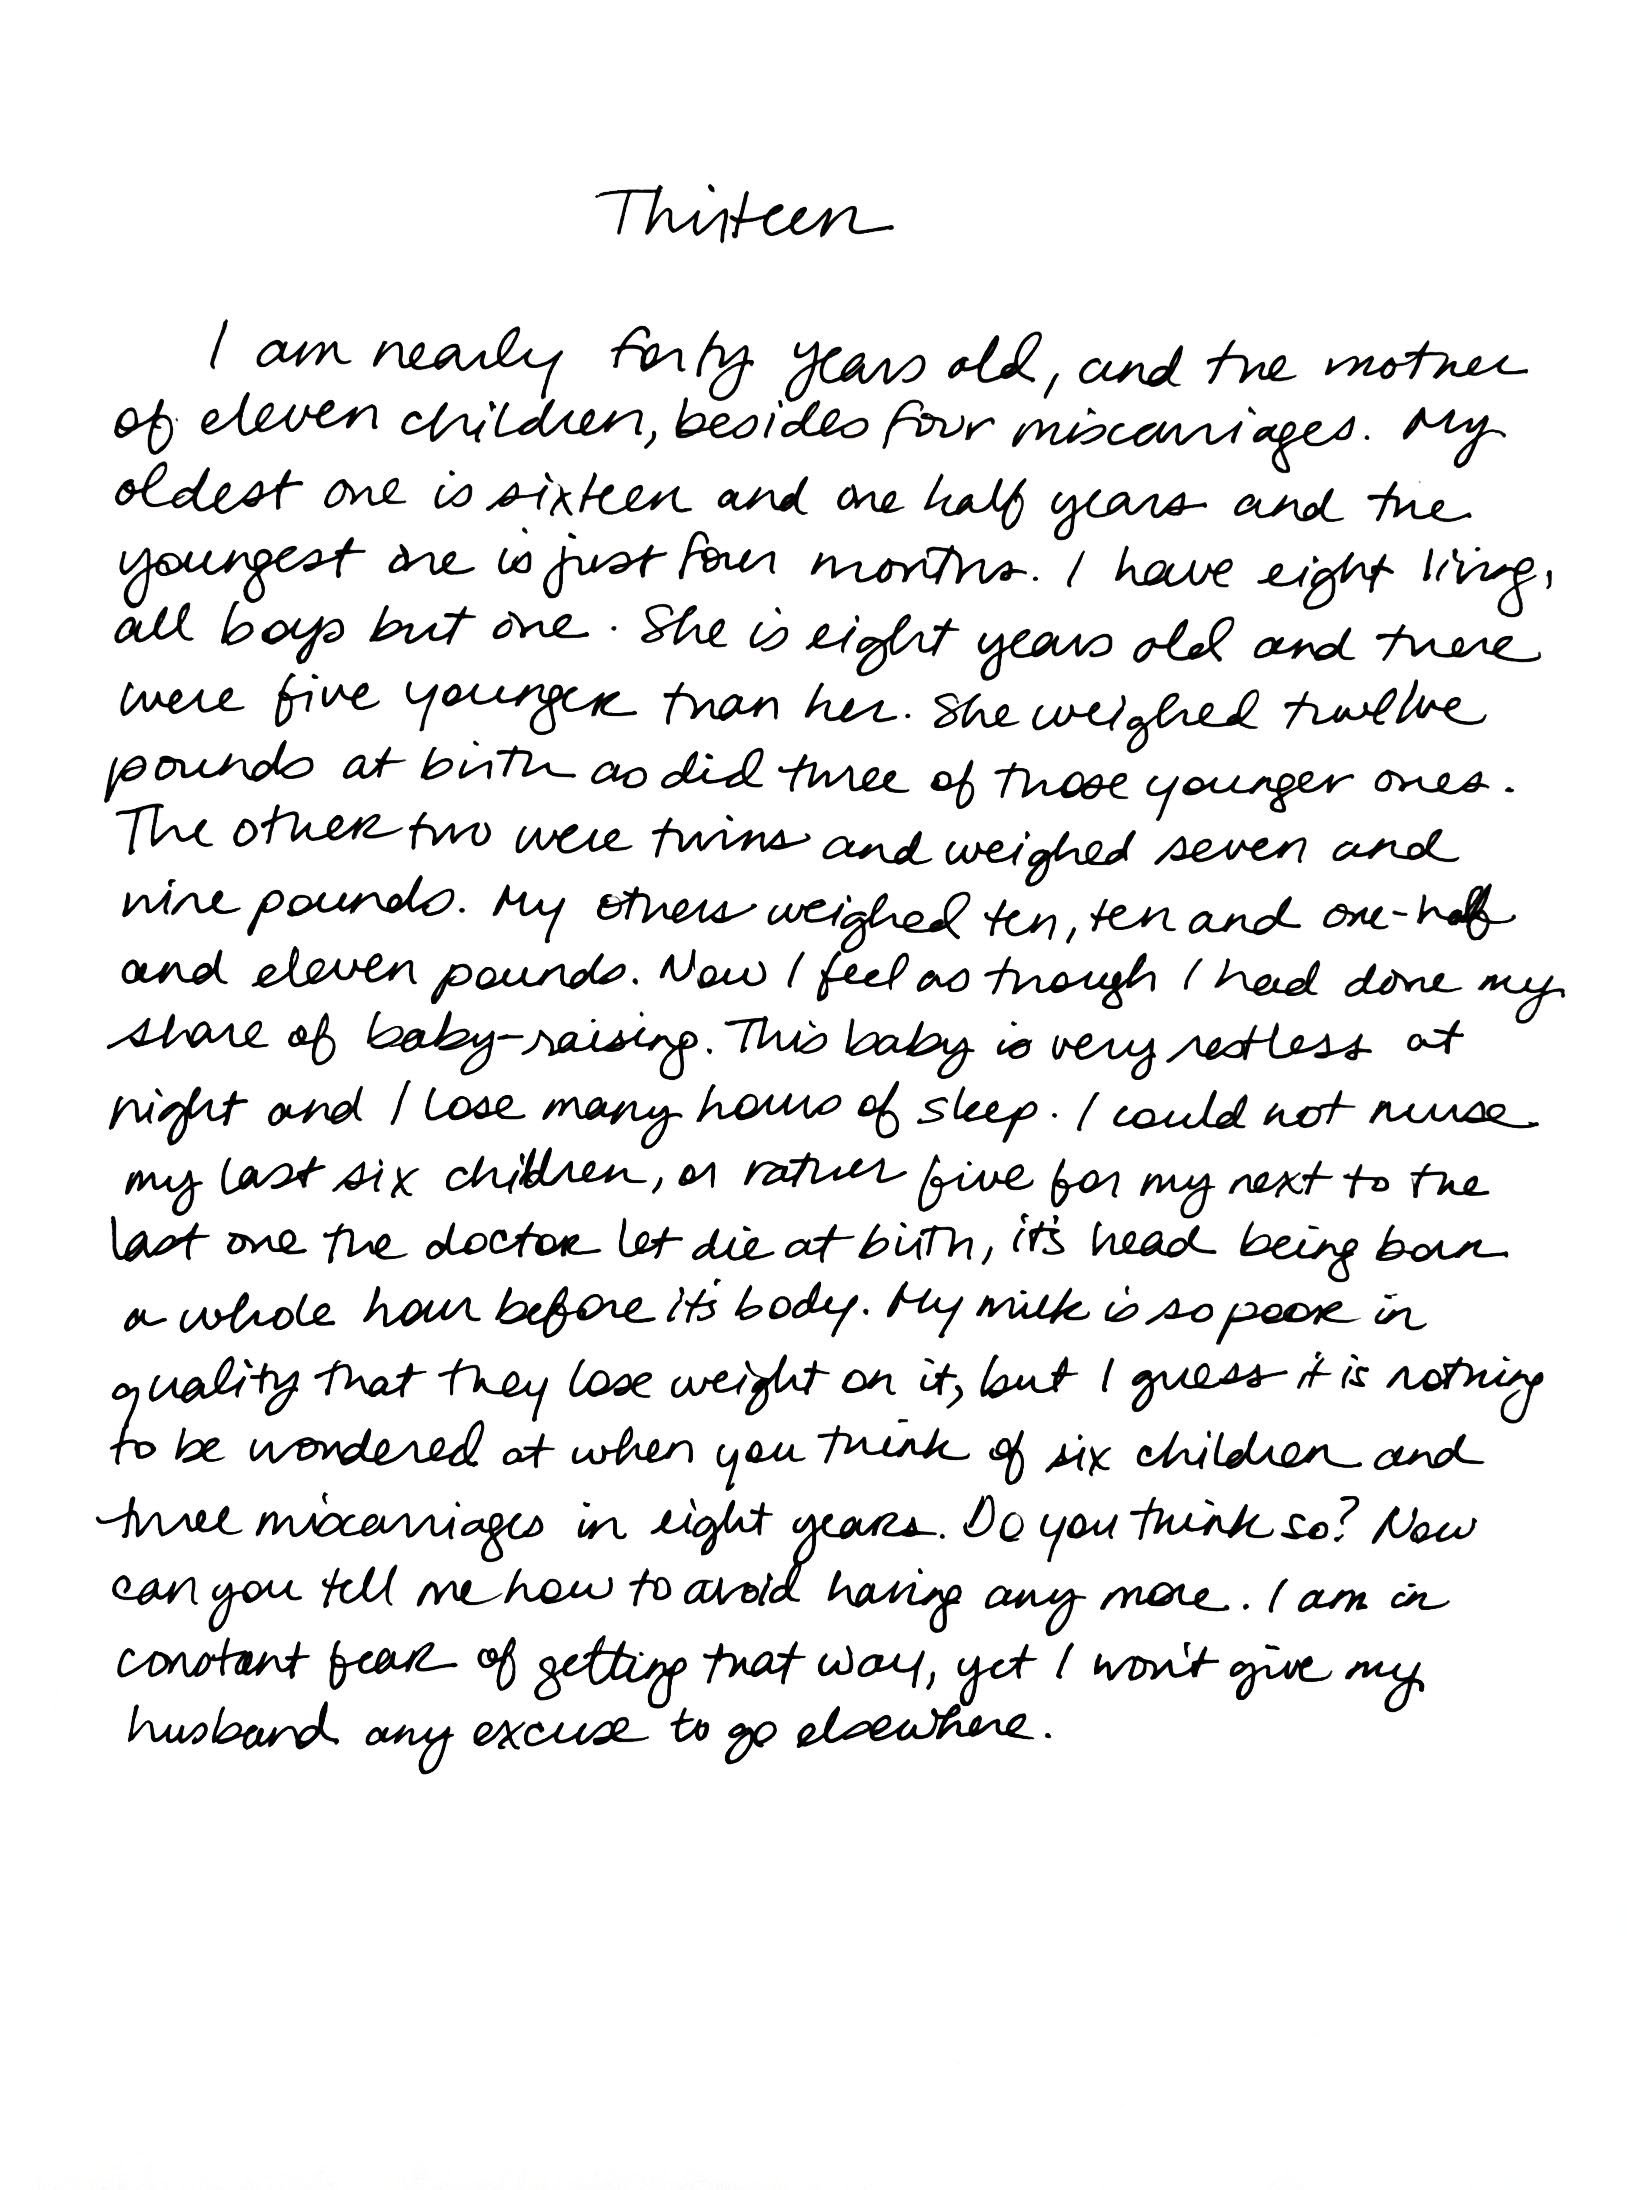 Thirteen
I am nearly forty years old, and the mother
of eleven children, besides four miscarriages. My
oldest one is sixteen and one half years and the
youngest one is just four months. I have eight living,
all boys but one. She is eight years old and there
were five younger than her. She weighed twelve
pounds at birth as did three of those younger ones.
The other two were twins and weighed seven and
nine pounds. My others weighed ten, ten and one-half
and eleven pounds. Now I feel as though I had done my
share of baby-raising. This baby is very restless at
night and I lose many hours of sleep. I could not nurse
my last six children, or rather five for my next to the
last one the doctor let die at birth, it's head being born
a whole hour before it's body. My milk is so poor in
quality that they lose weight on it, but I guess it is nothing
to be wondered at when you think of six children and
three miscarriages in eight years. Do you think so? Now
can you tell me how to avoid having any more. I am in
constant fear of getting that way, yet I won't give my
husband any excuse to go elsewhere.